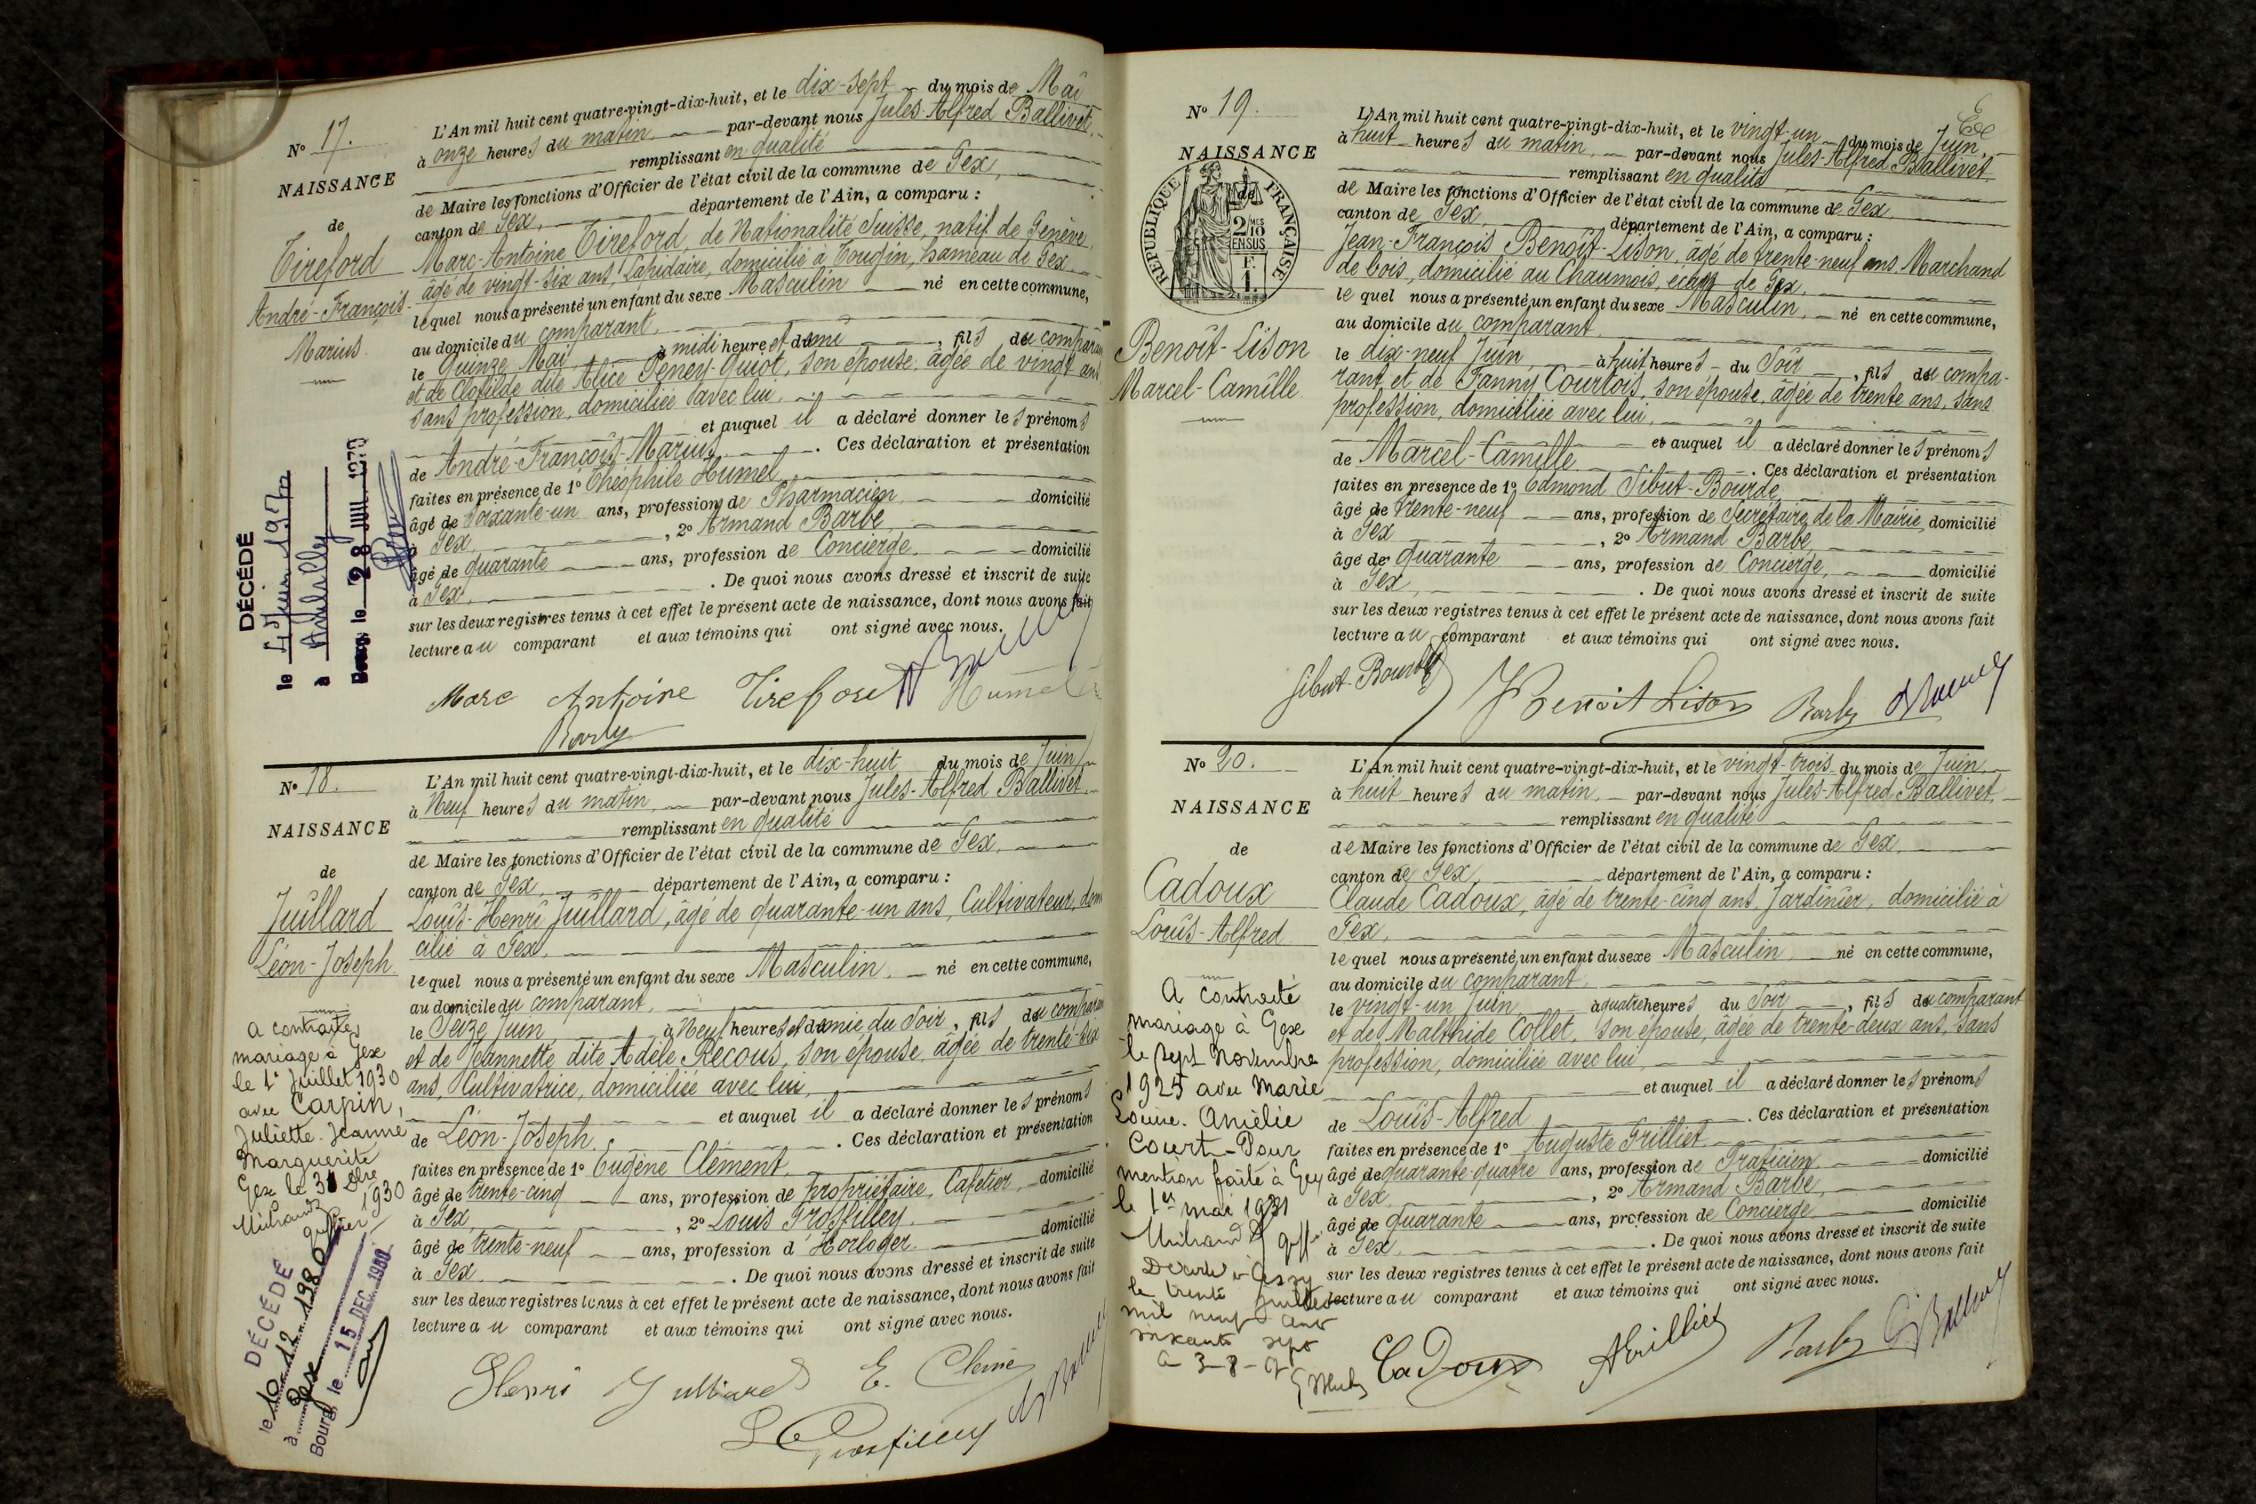 N° 17.
NAISSANCE
de
Tireford
André-François-
Marius
L'An mil huit cent quatre-vingt-dix-huit, et le dix-sept du mois de Mai
à onze heures du matin par-devant nous Jules Alfred Ballivet,
remplissant en qualité
de Maire les fonctions d'Officier de l'état civil de la commune de Gex,
canton de Gex, département de l'Ain, a comparu :
Marc-Antoine Tireford, de Nationalité Suisse, natif de Genève,
âgé de vingt-six ans, Lapidaire, domicilié à Tougin, hameau de Gex
lequel nous a présenté un enfant du sexe Masculin né en cette commune,
au domicile du comparant,
le Quinze Mai à midi heure et demi, fils du comparant
et de Clotilde dite Alice Peney-Guiot, son épouse, âgée de vingt ans
sans profession, domiciliée avec lui,
et auquel il a déclaré donner les prénoms
de André-François-Marius. Ces déclaration et présentation
faites en présence de 1° Théophile Humel
âgé de Soixante-un ans, profession de Pharmacien domicilié
à Gex, 2° Armand Barbe
âgé de quarante ans, profession de Concierge domicilié
à Gex. De quoi nous avons dressé et inscrit de suite
sur les deux registres tenus à cet effet le présent acte de naissance, dont nous avons fait
lecture au comparant et aux témoins qui ont signé avec nous.
Marc Antoine Tireford Humel
Barbe
DÉCÉDÉ
le
à Ambilly
Bourg, le 28 JUIL 1970
N° 18.
NAISSANCE
de
Juillard
Léon-Joseph
L'An mil huit cent quatre-vingt-dix-huit, et le dix-huit du mois de Juin
à Neuf heures du matin, par-devant nous Jules-Alfred Ballivet
remplissant en qualité
de Maire les fonctions d'Officier de l'état civil de la commune de Gex,
canton de Gex, département de l'Ain, a comparu :
Louis-Henri Juillard, âgé de quarante-un ans, Cultivateur, domi
cilié à Gex,
lequel nous a présenté un enfant du sexe Masculin, né en cette commune,
au domicile du comparant,
le Seize Juin à Neuf heures et demie du Soir, fils du comparant
et de Jeannette dite Adèle Recous, son épouse, âgée de trente-six
ans, Cultivatrice, domiciliée avec lui,
et auquel il a déclaré donner les prénoms
de Léon-Joseph. Ces déclaration et présentation
faites en présence de 1° Eugène Clément
âgé de trente-cinq ans, profession de propriétaire, Cafetier, domicilié
à Gex, 2° Louis Grosfilley
âgé de trente-neuf ans, profession d'Horloger domicilié
à Gex. De quoi nous avons dressé et inscrit de suite
sur les deux registres tenus à cet effet le présent acte de naissance, dont nous avons fait
lecture au comparant et aux témoins qui ont signé avec nous.
Henri Julliard E. Clément
L Grosfilley
A contracté
mariage à Gex
le 1er Juillet 1930
avec Carpin,
Juliette-Jeanne
Marguerite
Gex le 31 Xbre
1930
greffier
DÉCÉDÉ
le 10.12.1980
à Gex
Bourg, le 15 DEC. 1980
N° 19.
NAISSANCE
de
RÉPUBLIQUE FRANÇAISE
2/10 EN SUS
Benoît-Lison
Marcel-Camille
L'An mil huit cent quatre-vingt-dix-huit, et le vingt-un du mois de Juin,
à huit heures du matin, par-devant nous Jules-Alfred Ballivet
remplissant en qualité
de Maire les fonctions d'Officier de l'état civil de la commune de Gex
canton de Gex, département de l'Ain, a comparu :
Jean-François Benoît-Lison, âgé de trente-neuf ans Marchand
de bois, domicilié au Chaumois, écart de Gex,
lequel nous a présenté un enfant du sexe Masculin, né en cette commune,
au domicile du comparant
le dix-neuf Juin, à huit heures du Soir, fils du compa-
rant et de Fanny Courtois, son épouse, âgée de trente ans, sans
profession, domiciliée avec lui,
et auquel il a déclaré donner les prénoms
de Marcel-Camille. Ces déclaration et présentation
faites en présence de 1° Edmond Sibut-Bourde
âgé de trente-neuf ans, profession de Secrétaire de la Mairie, domicilié
à Gex, 2° Armand Barbe
âgé de quarante ans, profession de Concierge, domicilié
à Gex. De quoi nous avons dressé et inscrit de suite
sur les deux registres tenus à cet effet le présent acte de naissance, dont nous avons fait
lecture au comparant et aux témoins qui ont signé avec nous.
Sibut-Bourde Benoit Lison Barbe
N° 20.
NAISSANCE
de
Cadoux
Louis-Alfred
L'An mil huit cent quatre-vingt-dix-huit, et le vingt-trois du mois de Juin
à huit heures du matin, par-devant nous Jules-Alfred Ballivet,
remplissant en qualité
de Maire les fonctions d'Officier de l'état civil de la commune de Gex
canton de Gex, département de l'Ain, a comparu :
Claude Cadoux, âgé de trente-cinq ans, Jardinier, domicilié à
Gex,
lequel nous a présenté un enfant du sexe Masculin né en cette commune,
au domicile du comparant
le vingt-un Juin à quatre heures du Soir, fils du comparant
et de Malthide Collet, son épouse, âgée de trente-deux ans, sans
profession, domiciliée avec lui,
et auquel il a déclaré donner les prénoms
de Louis-Alfred. Ces déclaration et présentation
faites en présence de 1° Auguste Grilliet
âgé de quarante-quatre ans, profession de Praticien domicilié
à Gex, 2° Armand Barbe,
âgé de quarante ans, profession de Concierge domicilié
à Gex. De quoi nous avons dressé et inscrit de suite
sur les deux registres tenus à cet effet le présent acte de naissance, dont nous avons fait
lecture au comparant et aux témoins qui ont signé avec nous.
Cadoux AGrilliet Barbe Ballivet
A contracté
mariage à Gex
le sept Novembre
1925 avec Marie
Louise. Amélie
Court-Pour
mention faite à Gex
le 1er mai 1931
Décédé à Cessy
le trente juillet
mil neuf cent
soixante sept